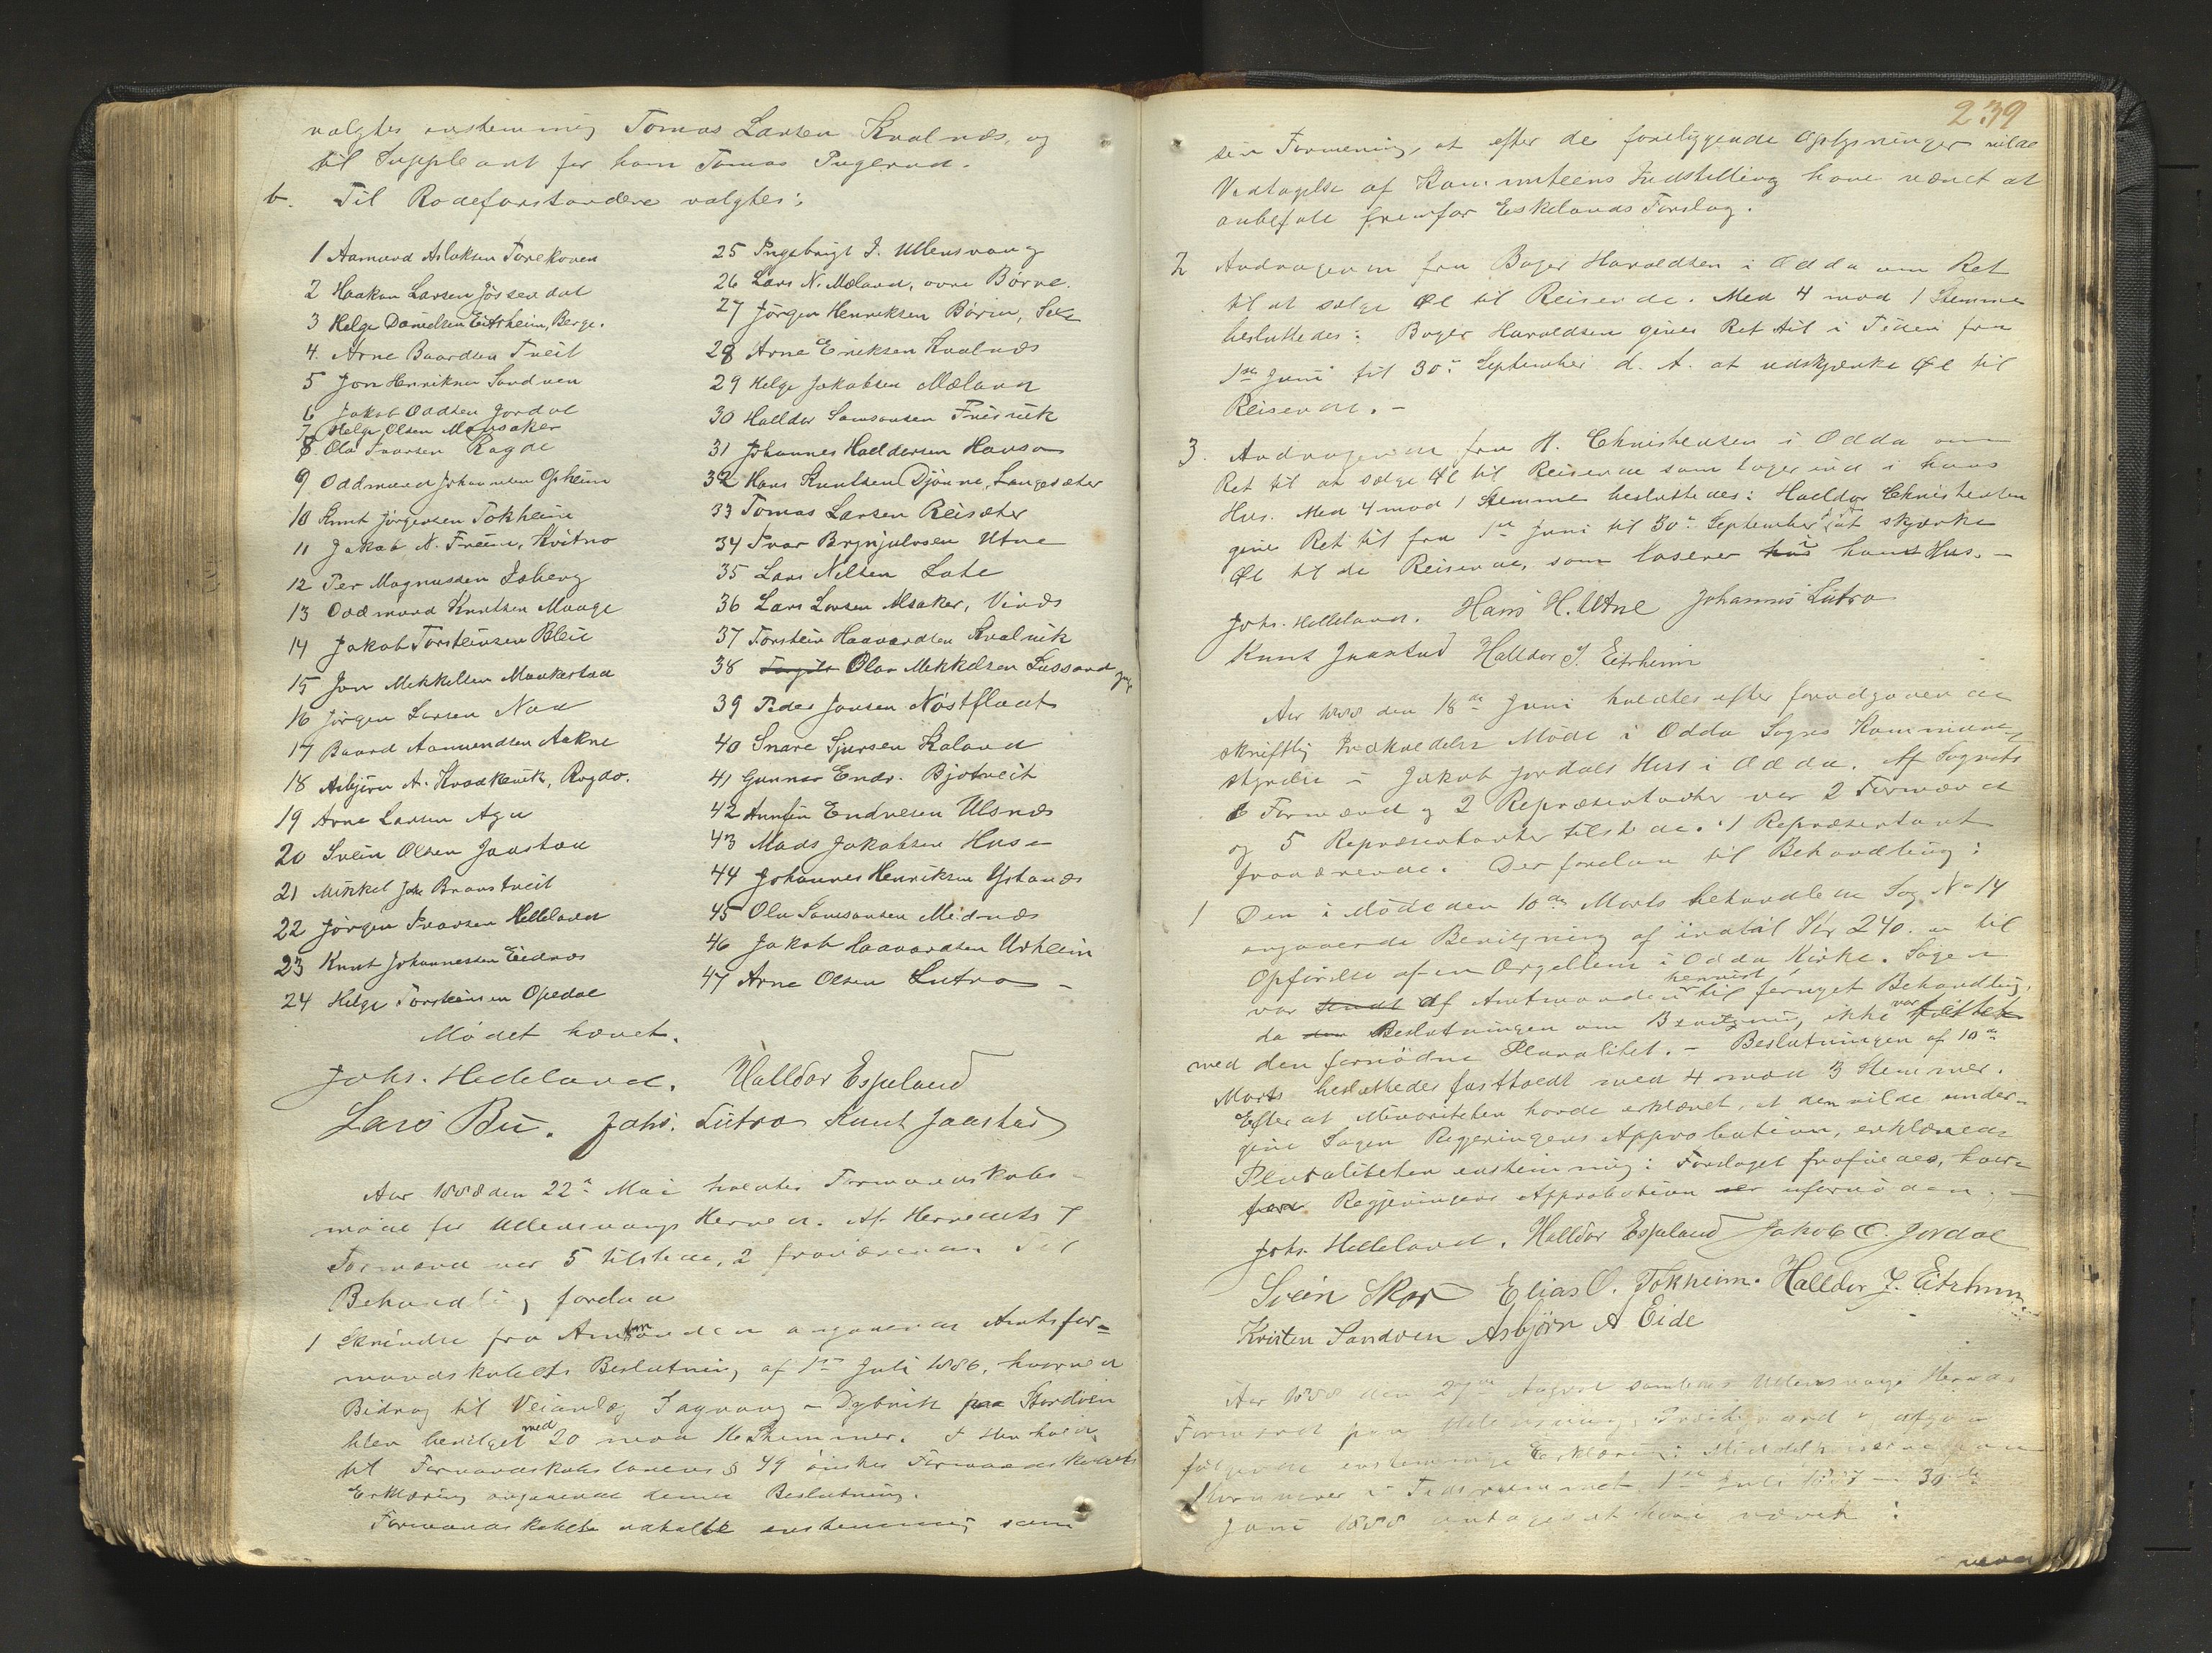 valgtes enstemmig Tomas Larsen Kvalnæs, og
til Suppleant for ham Tomas
b. Til Rodeforstandere valgtes:
1 Aamund Aslaksen
2 Haakon Larsen Jøssendal
3 Helge Danielsen Eitrheim, Berge.
4. Arne Baardsen Tveit
5 Jon Henriksen Sandven
6 Jakob Oddsen Jordal
7 Helge Olsen Mansaker
8 Ola Ivarsen Ragde
9 Oddmund Johannesen Opheim
10 Knut Jørgensen Tokheim
11 Jakob N. Freim, Kvitno
12 Per Magnussen Isberg
13 Oddmund Knutsen Maage
14 Jakob Torsteinsen Bleie
15 Jon Mikkelsen Maakestad
16 Jørgen Larsen Naa
17 Baard Aamundsen Aakre
18 Asbjørn A. Kvædkevik, Rogdo.
19 Arne Larsen Aga
20 Svein Olsen Jaastad
21 Mikkel Joh Braastveit
22 Jørgen Ivarsen Helleland
23 Knut Johannessen Eidnes
24 Helge Torsteinsen Opedal
25 Ingebrigt J. Ullensvang
26 Lars N. Mæland, øvre Børve.
27 Jørgen Henriksen Børve,
28 Arne Eriksen Kvalnæs
29 Helge Jakobsen Mæland
30 Halldor Samsonsen Fresvik
31 Johannes Halldorsen Hauso
32 Hans Knutsen Djønne, Langesæter
33 Tomas Larsen Reisæter
34 Ivar Brynjulvsen Utne
35 Lars Nilsen Lote
36 Lars Larsen Alsaker, Vinæs
37 Torstein Haavardsen Kvalvik
38 Olav Mikkelsen Sussand
39 Peder Jonsen Nøstflaat
40 Snare Sjursen Kaland
41 Gunnar Endr. Bjotveit
42 Aamund Endresen Ulsnæs
43 Mads Jakobsen Huse
44 Johannes Henriksen Ystanæs
45 Ola Samsonsen Midnæs
46 Jakob Haavardsen Urheim
47 Arne Olsen Lutro -
Mødet hævet.
Johs. Helleland. Halldor Espeland
Lars Bu. Johs. Lutro Knut Jaastad
Aar 1888 den 22de Mai holdtes Formandskabs-
møde for Ullensvangs Herred. Af Herredets 7
Formænd var 5 tilstede, 2 fraværende. Til
Behandling forelaa
1 Skrivelse fra Amtmanden angaaende Amtsfor=
mandskabets Beslutning af 1ste Juli 1886, hvorved
Bidrag til Veianlæg Fagravag - Dybvik paa Stordøen
blev bevilget med 20 mod 16 Stemmer. I Henhold
til Formandskabslovens § 49 ønskes Formandskabets
Erklæring angaaende denne Beslutning.
Formandskabet udtalte enstemmig som
239
sin Formening, at efter de foreliggende Oplysninger vilde
Vedtagelse af Kommiteens Indstilling have været at
anbefale fremfor Eskelands Forslag.
2 Andragende fra Boger Haraldsen i Odda om Ret
til at sælge Øl til Reisende. Med 4 mod 1 Stemme
besluttedes: Boger Haraldsen gives Ret til i Tiden fra
1ste Juni til 30te September d. A. at udskjænke Øl til
Reisende. -
3. Andragende fra H. Christensen i Odda om
Ret til at sælge Øl til Reisende som tager ind i hans
Hus. Med 4 mod 1 Stemme besluttedes: Halldor Christensen
gives Ret til fra 1ste Juni til 30te September at skjænke
Øl til de Reisende, som loserer i hans Hus. -
Johs. Helleland. Hans H. Utne Johannes Lutro
Knut Jaastad Halldor J. Eitrheim
Aar 1888 den 18de Juni holdtes efter foregaaende
skriftlig Indkaldelse Møde i Odda Sogns Kommune-
styrelse i Jakob Jordals Hus i Odda. Af Sognets
Formænd og 2 Repræsentanter var 2 Formænd
og 5 Repræsentanter tilstede. 1 Repræsentant
fraværende. Der forelaa til Behandling:
1 Den i Møde den 10de Marts behandlede Sag No 14
angaaende Bevilgning af indtil Kr 240. til
Opførelse af en Orgellem i Odda Kirke. Sagen
var sendt af Amtmanden henvist til fornyet Behandling,
da den Beslutningen om Bevilgning ikke var fattet
med den fornødne Pluralitet. - Beslutningen af 10de
Marts besluttedes fastholdt med 4 mod 3 Stemmer.
Efter at Minoriteten havde erklæret, at den vilde under-
give Sagen Regjeringens Approbation, erklærede
Pluraliteten enstemmig: Forslaget frafaldes, hvor-
for Regjeringens Approbation er ufornøden. -
Johs. Helleland. Halldor Espeland Jakob O. Jordal
Svein Skar Elias O. Tokheim. Halldor J. Eitrheim
Kristen Sandven Asbjørn A Eide
Aar 1888 den 27de August samledes Ullensvangs Herreds
Formænd paa Ullensvang Præstegaard og afgav
følgende enstemmige Erklæring: Middelpriserne paa
Kornvarer i Tidsrummet 1ste Juli 1887 - 30te
Juni 1888 antages at have været: